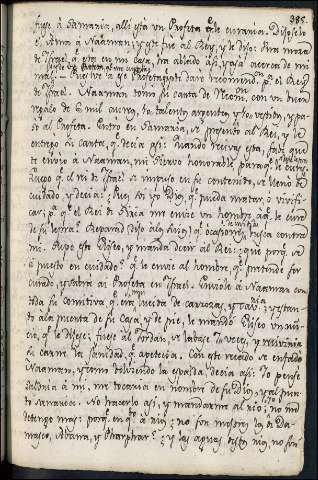 385.
fuese à Samaria, allí esta un Profeta q.e le curaria. Dijoselo
el Ama à Naaman; y este fue al Rey, y le dijo: Una moza
de Israel, q.e esta en mi Casa, ha abladò asi, y asi acerca de mi
mal. Pues vè à ese
p.a el Rey
de Israel. Naaman tomo su carta de recom.on, con un buen
regalo de 6 mil aureos, 10 talentos argenteos, y 10 vestidos, y pa-
sò al Profeta. Entro en Samaria, se presento al Rei, y le
entrego su Carta, q.e decia asi: Quando recivas esta, sabe que
te envio à Naaman, mi siervo honorable para q.e le cures
Luego q.e el rei de Israel se impuso en su contenido, se lleno de
cuidado, y decia: Pues soi yo Dios, q.e pueda matar, o vivifi-
car; p.a q.e el Rei de Siria me envie un hombre aca, le cure
de su lepra? Reparad (dijo à los suyos) q.e ocasiones busca contra
mi. Supo esto Eliseo, y manda decir al Rei: ¿que porq.e se
à puesto en cuidado? q.e le envie al hombre, q.e pretende ser
curado, y sabra ai Profeta en Israel. Enviole à Naaman con
toda su Comitiva q.e era
de carrozas, y cav.s; y estan-
do à la puerta de su Casa, y de pie, le mandò Eliseo un nun-
cio, q.e le dijese; fuese al Jordan, se labase 7 veces, y reciviria
su carne la sanidad, q.e apetecia. Con este recado se enfadò
Naaman, y como bolviendo la espalda decia asi: Yo pensè
saldria à mi, me tocaria en nombre de su Dios, y al pun-
to sanaria. No hacerlo asi, y mandarme al rio; no me
detengo mas: porq.e en q.to à rios; no son mejores los de Da-
masco, Abana, y Pharphar? ¿y las aguas destos rios, no son